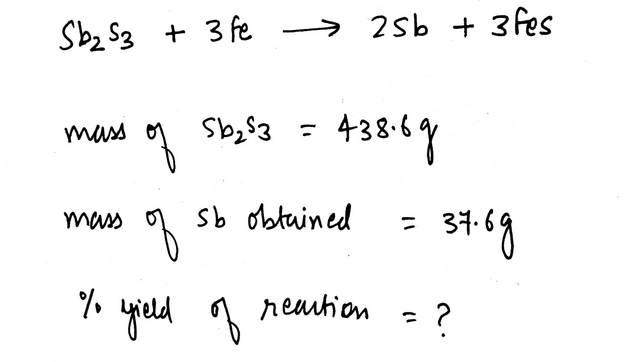 Sb2S3 + 3fe → 2Sb + 3fes
mass of Sb2S3 = 438.6g
mass of sb obtained = 37.6g
% yield of reaction = ?